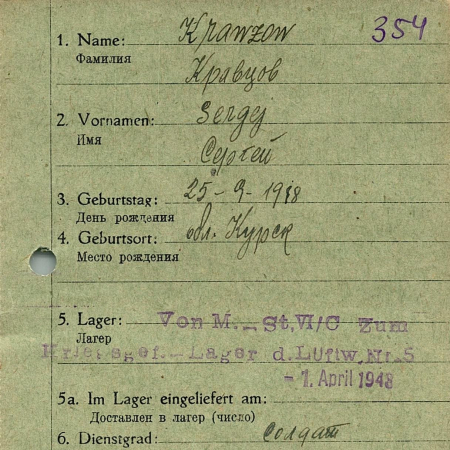 354
1. Name: Krawzow
Фамилия
Кравцов
2. Vornamen: Sergej
Имя
Сергей
3. Geburtstag: 25-9-1918
День рождения
4. Geburtsort: обл. Курск
Место рождения
5. Lager: Von M.-St.VI/C Zum
Лагер
Kriegsgef.-Lager d.Luftw.Nr.5
-1. April 1943
5a. Im Lager eingeliefert am:
Доставлен в лагер (число)
6. Dienstgrad: солдат